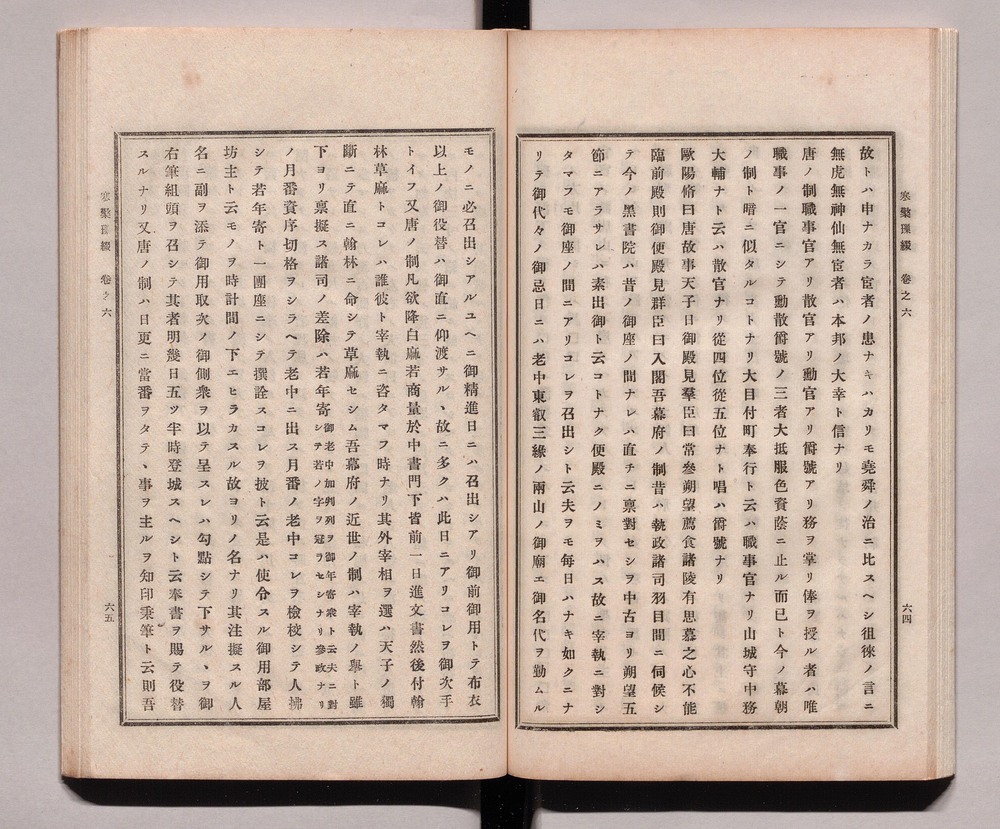 寒檠璅綴 卷之六
六四
故トハ申ナカラ宦者ノ患ナキハカリモ堯舜ノ治ニ比スヘシ徂徠ノ言ニ
無虎無神仙無宦者ハ本邦ノ大幸ト信ナリ
唐ノ制職事官アリ散官アリ勳官アリ爵號アリ務ヲ掌リ俸ヲ授ル者ハ唯
職事ノ一官ニシテ勳散爵號ノ三者大抵服色資蔭ニ止ル而已ト今ノ幕朝
ノ制ト暗ニ似タルコトナリ大目付町奉行ト云ハ職事官ナリ山城守中務
大輔ナト云ハ散官ナリ從四位從五位ナト唱ハ爵號ナリ
歐陽脩曰唐故事天子日御殿見羣臣曰常參朔望薦食諸陵有思慕之心不能
臨前殿則御便殿見群臣曰入閤吾幕府ノ制昔ハ執政諸司羽目間ニ伺候シ
テ今ノ黑書院ハ昔ノ御座ノ間ナレハ直チニ禀對セシヲ中古ヨリ朔望五
節ニアラサレハ素出御ト云コトナク便殿ニノミヲハス故ニ宰執ニ對シ
タマフモ御座ノ間ニアリコレヲ召出シト云夫ヲモ每日ハナキ如クニナ
リテ御代々ノ御忌日ニハ老中東叡三緣ノ兩山ノ御廟エ御名代ヲ勤ムル
モノニ必召出シアルユヘニ御精進日ニハ召出シアリ御前御用トテ布衣
以上ノ御役替ハ御直ニ仰渡サルヽ故ニ多クハ此日ニアリコレヲ御次手
トイフ又唐ノ制凡欲降白麻若商量於中書門下皆前一日進文書然後付翰
林草麻トコレハ誰彼ト宰執ニ咨タマフ時ナリ其外宰相ヲ選ハ天子ノ獨
斷ニテ直ニ翰林ニ命シテ草麻セシム吾幕府ノ近世ノ制ハ宰執ノ擧ト雖
下ヨリ禀擬ス諸司ノ差除ハ若年寄御老中加判列ヲ御年寄衆ト云夫ニ對シテ若ノ字ヲ冠ラセシナリ參政ナリ
ノ月番資序切格ヲシラヘテ老中ニ出ス月番ノ老中コレヲ檢校シテ人拂
シテ若年寄ト一團座ニシテ撰詮スコレヲ披ト云是ハ使令スル御用部屋
坊主ト云モノヲ時計間ノ下エヒラカスル故ヨリノ名ナリ其注擬スル人
名ニ副ヲ添テ御用取次ノ御側衆ヲ以テ呈スレハ勾點シテ下サルヽヲ御
右筆組頭ヲ召シテ其者明幾日五ツ半時登城スヘシト云奉書ヲ賜テ役替
スルナリ又唐ノ制ハ日更ニ當番ヲタテヽ事ヲ主ルヲ知印秉筆ト云則吾
寒檠璅綴 卷之六
六五